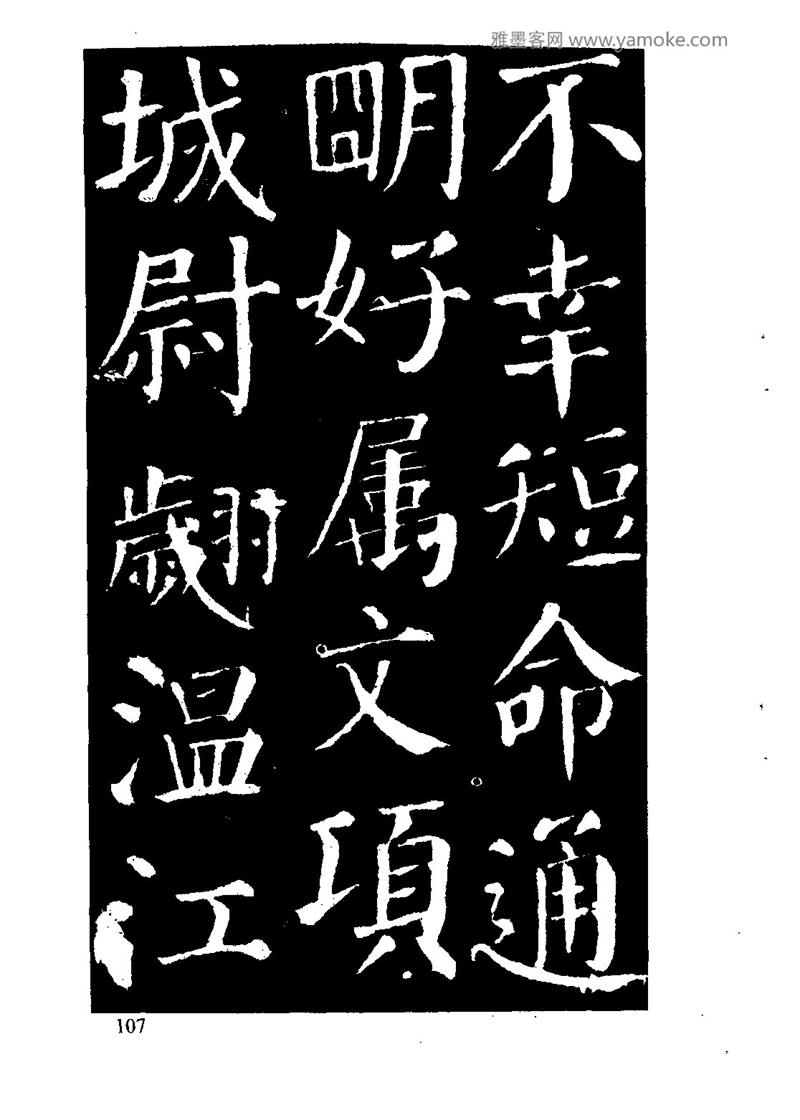 雅墨客网 www.yamoke.com
不幸短命通
明好属文項
城尉翽温江
107